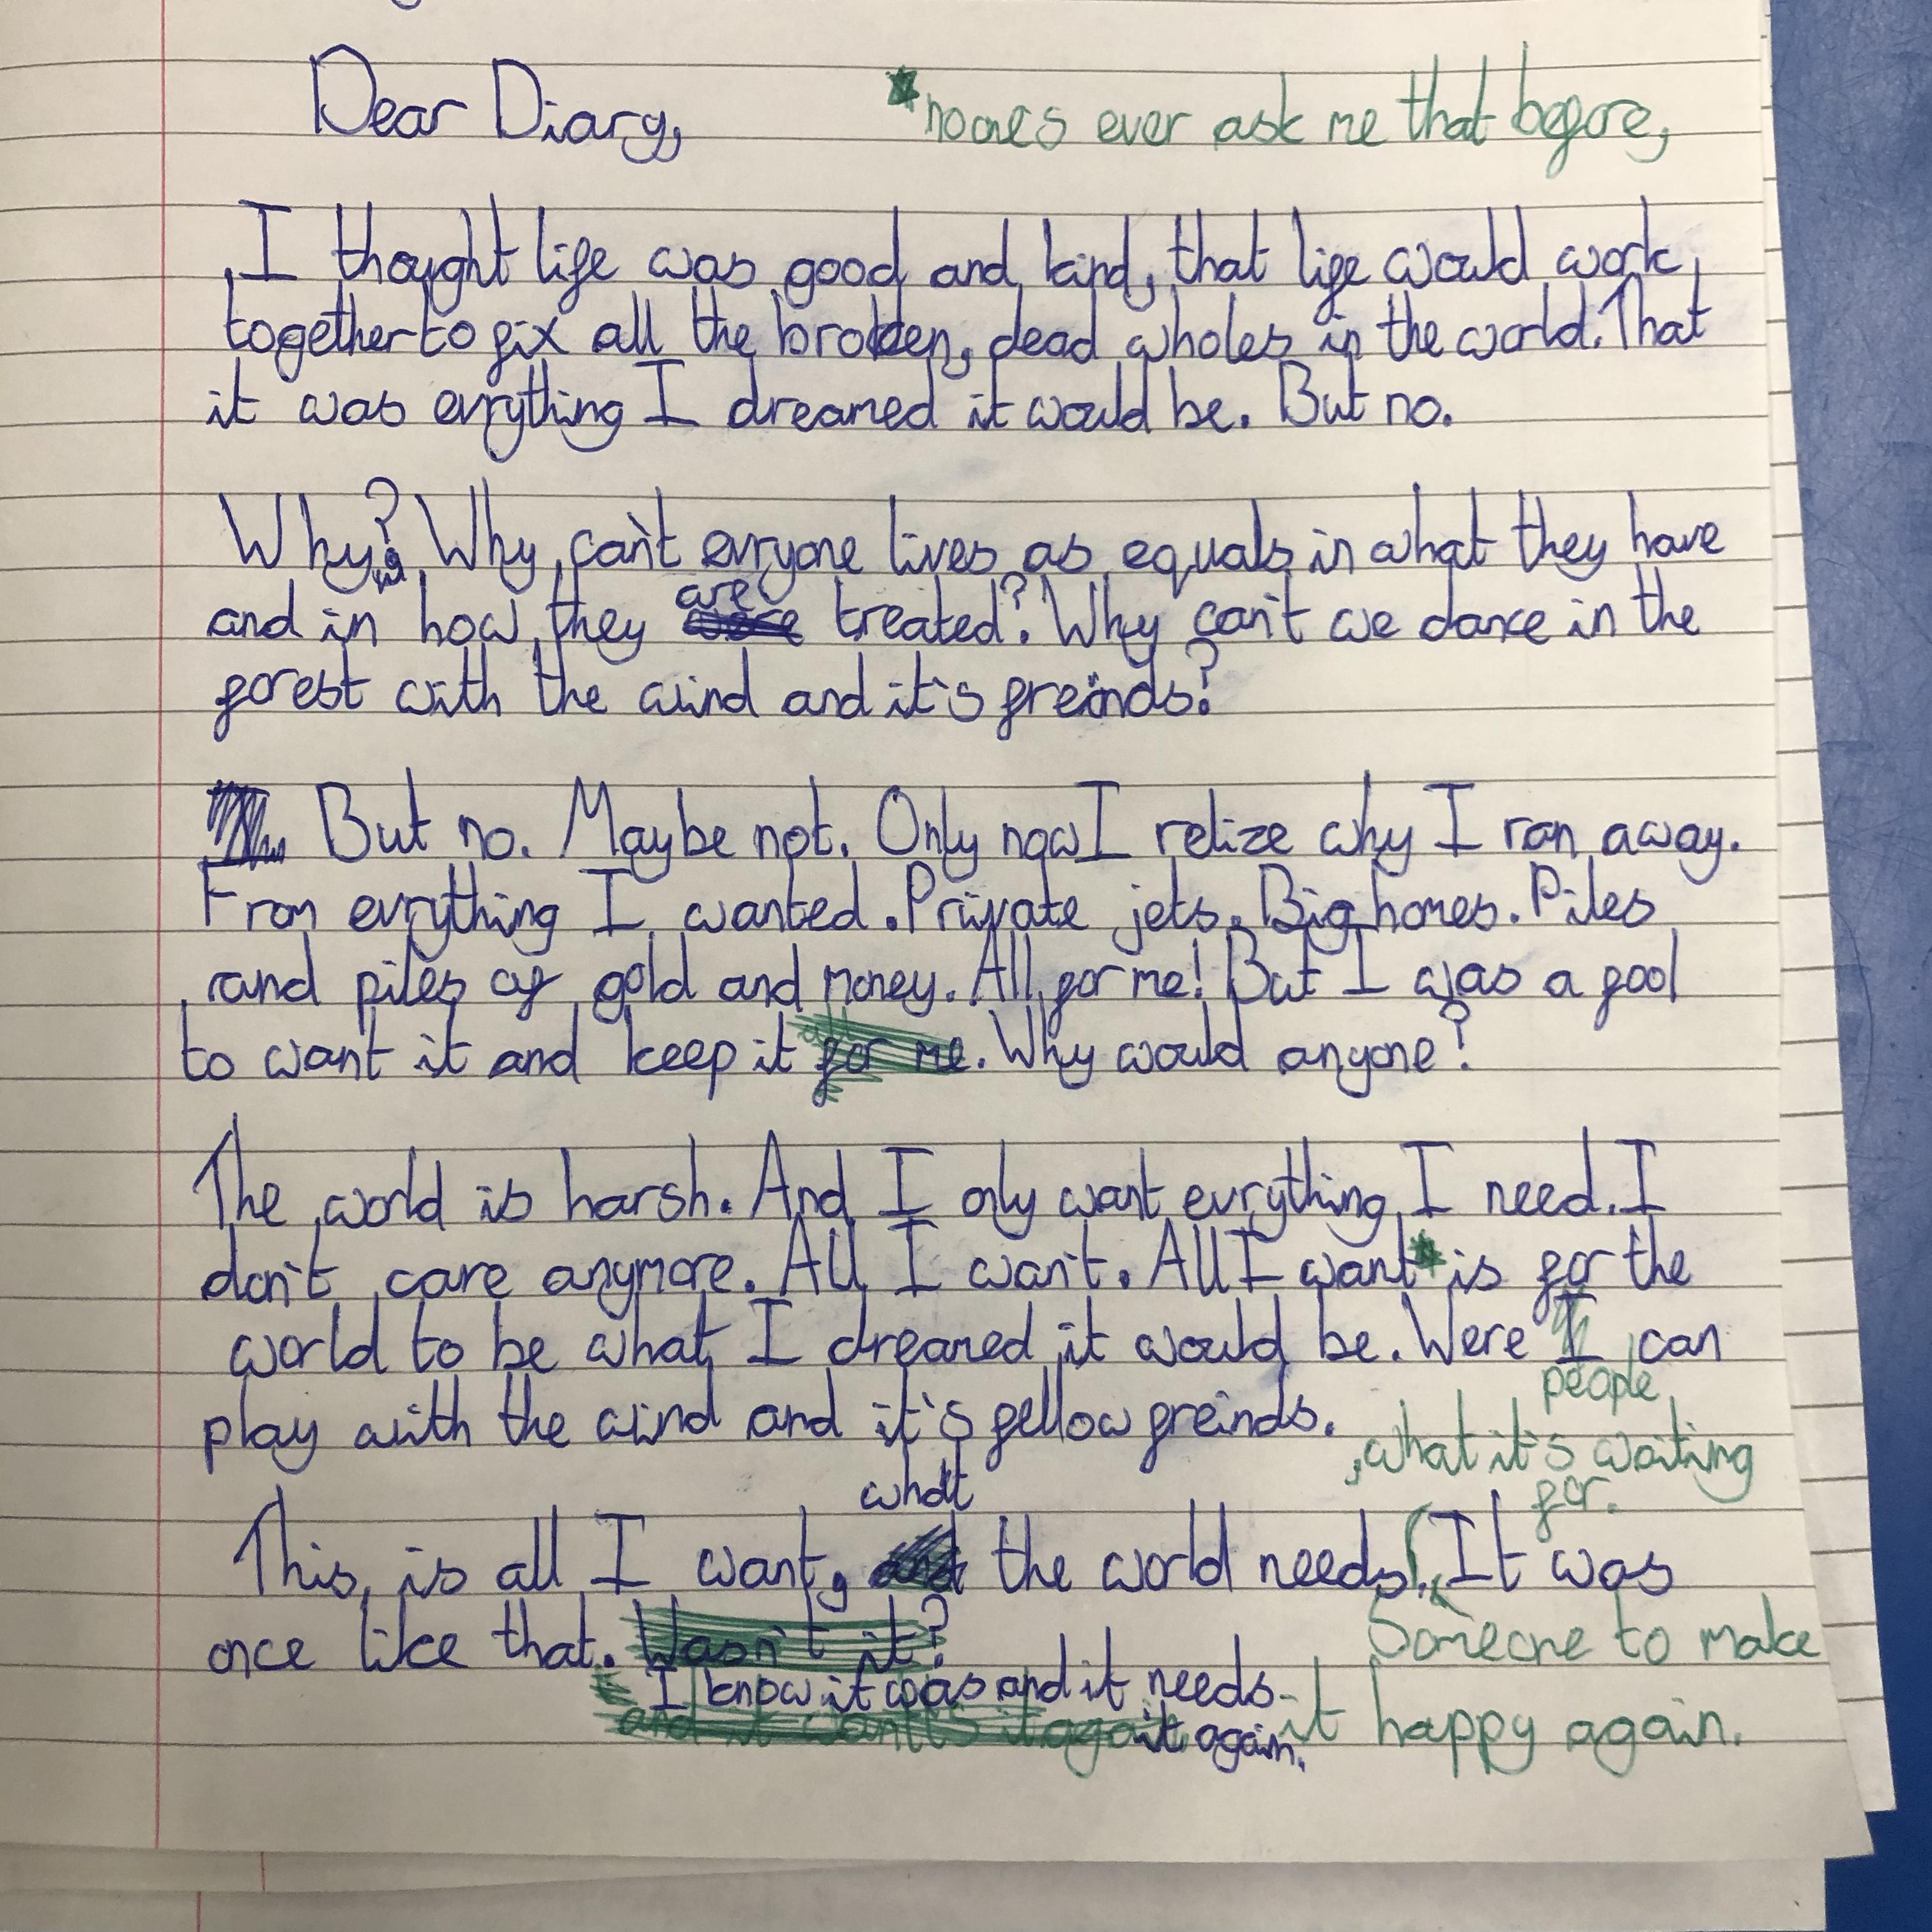 Dear Diary,
*noones ever ask me that before,
I thought life was good and kind, that life would work
together to fix all the broken, dead wholes in the world. That
it was evrything I dreamed it would be. But no.
Why? Why can't evryone lives as equals in what they have
are
and in how they were treated? Why can't we dance in the
forest with the wind and it's freinds?
But no. Maybe not. Only now I relize why I ran away.
From evrything I wanted. Private jets. Big homes. Piles
and piles of gold and money. All for me! But I was a fool
to want it and keep it for me. Why would anyone?
The world is harsh. And I only want evrything I need. I
don't care anymore. All I wan't. All I want* is for the
world to be what I dreamed it would be. Were I can
people
play with the wind and it's fellow freinds.
, what it's waiting
for.
what
This is all I want, and the world needs. It was
Someone to make
once like that. Wasn't it?
I know it was and it needs
and it wants it again it again. it happy again.